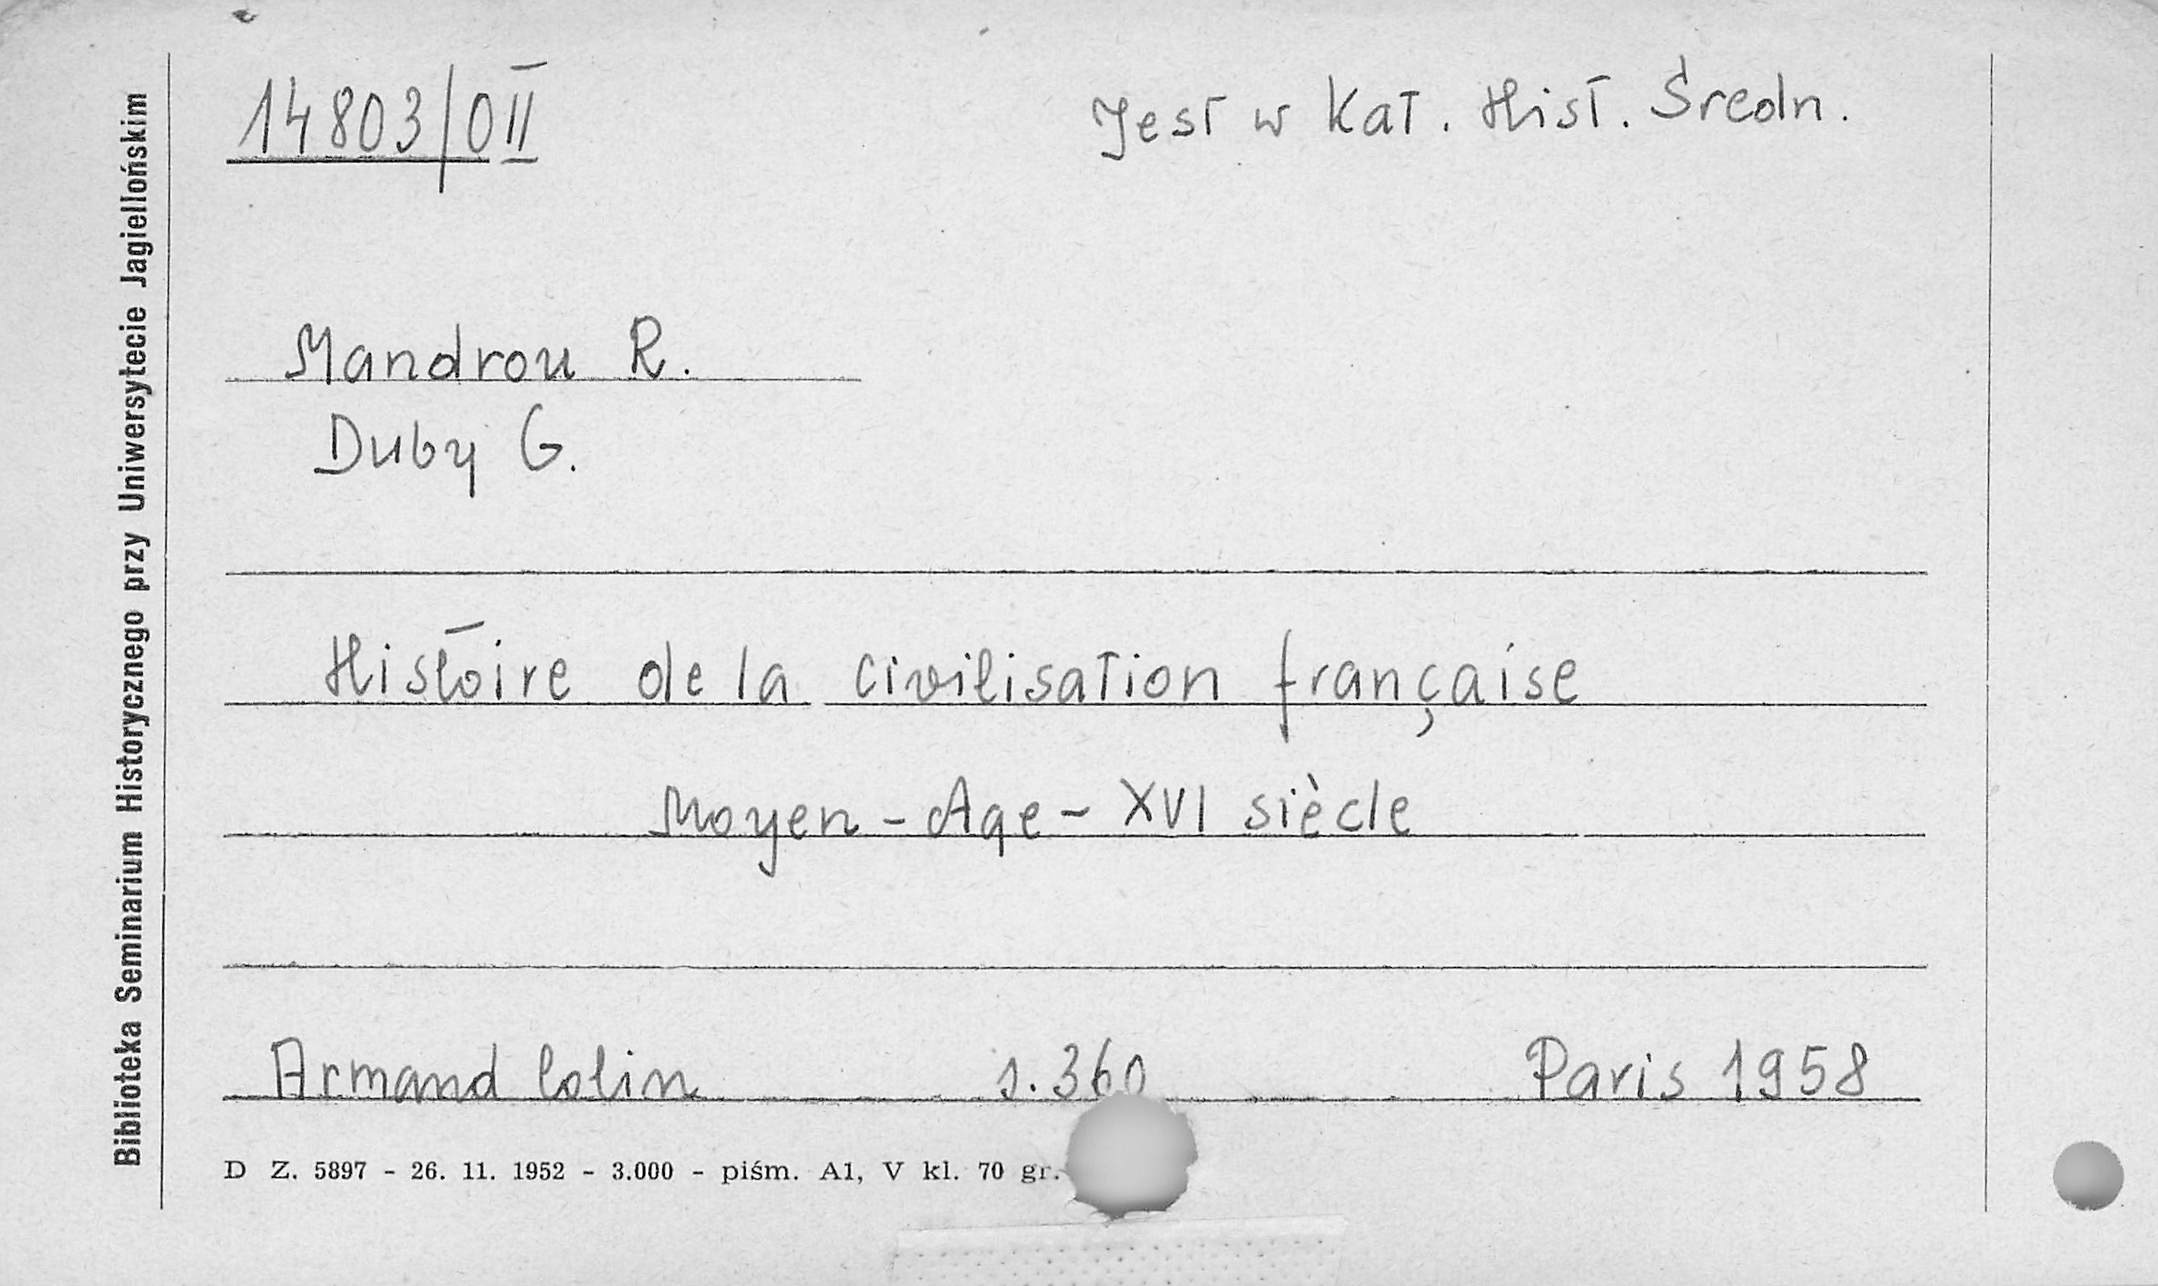 14803/0II
Jest w Kat. Hist. Średn.
Mandrou R.
Duby G.
Histoire de la civilisation française
Moyen - Age - XVI siècle
Armand Colin s. 360 Paris 1958
D Z. 5897 - 26. 11. 1952 - 3.000 - piśm. A1, V kl. 70 gr.
Biblioteka Seminarium Historycznego przy Uniwersytecie Jagiellońskim